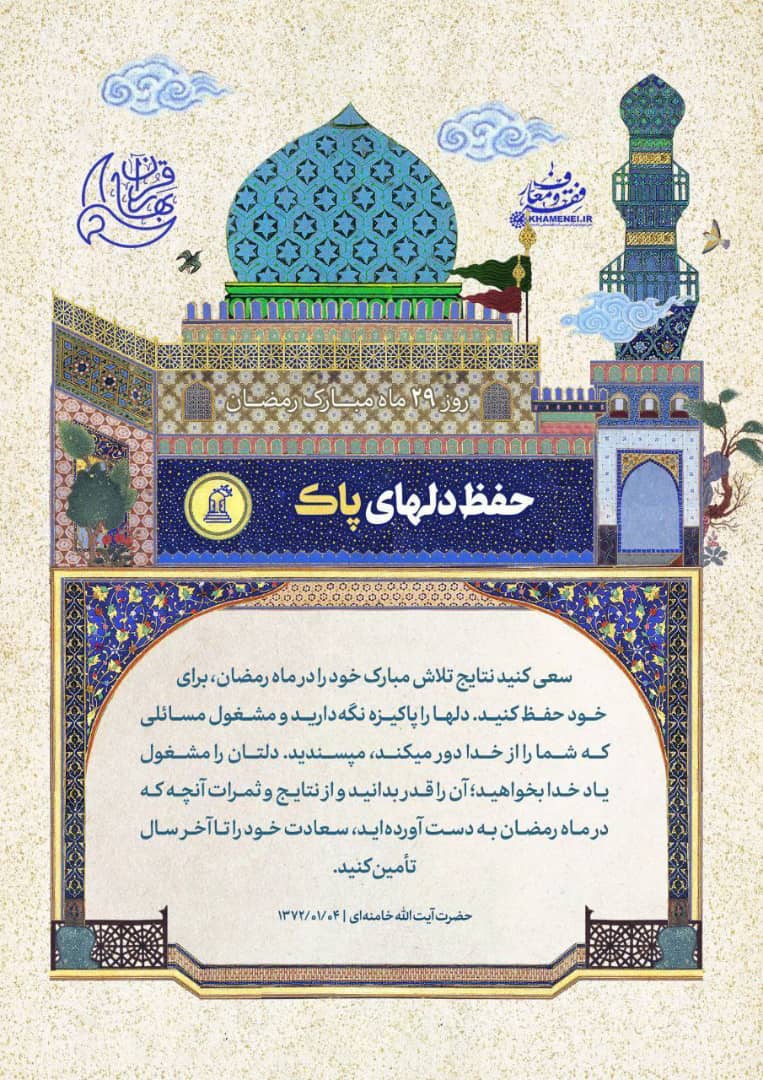 بهار قرآن
فقه و معارف
KHAMENEI.IR
روز ۲۹ ماه مبارک رمضان
حفظ دلهای پاک
سعی کنید نتایج تلاش مبارک خود را در ماه رمضان، برای
خود حفظ کنید. دلها را پاکیزه نگه دارید و مشغول مسائلی
که شما را از خدا دور میکند، مپسندید. دلتان را مشغول
یاد خدا بخواهید؛ آن را قدر بدانید و از نتایج و ثمرات آنچه که
در ماه رمضان به دست آورده‌اید، سعادت خود را تا آخر سال
تأمین کنید.
حضرت آیت الله خامنه‌ای | ۱۳۷۲/۰۱/۰۴